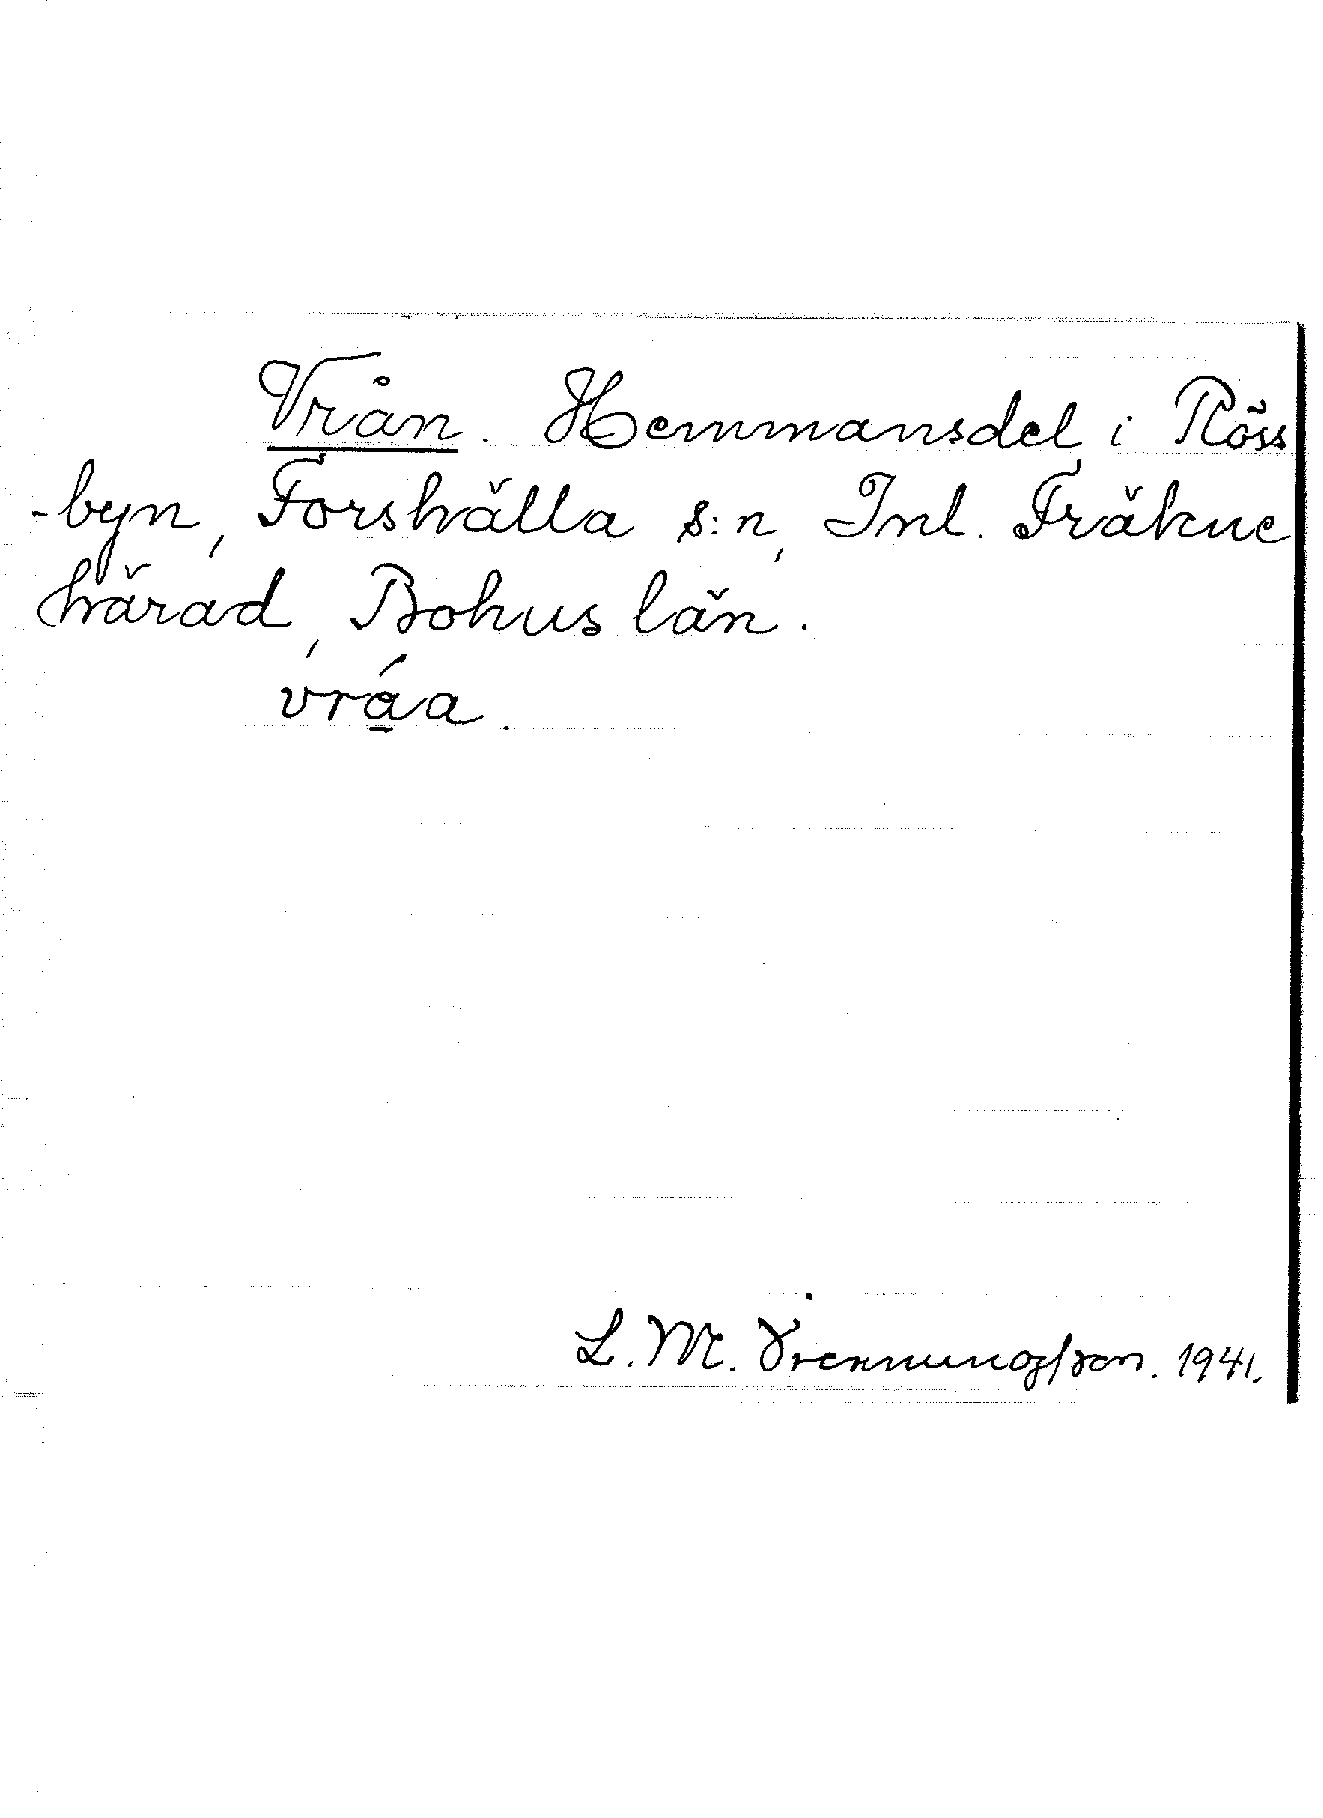 Vrån. Hemmansdel i Röss
-byn, Forshälla s:n, Inl. Fräkne
härad, Bohus län.
vrá̱a.
L. M. 1941.